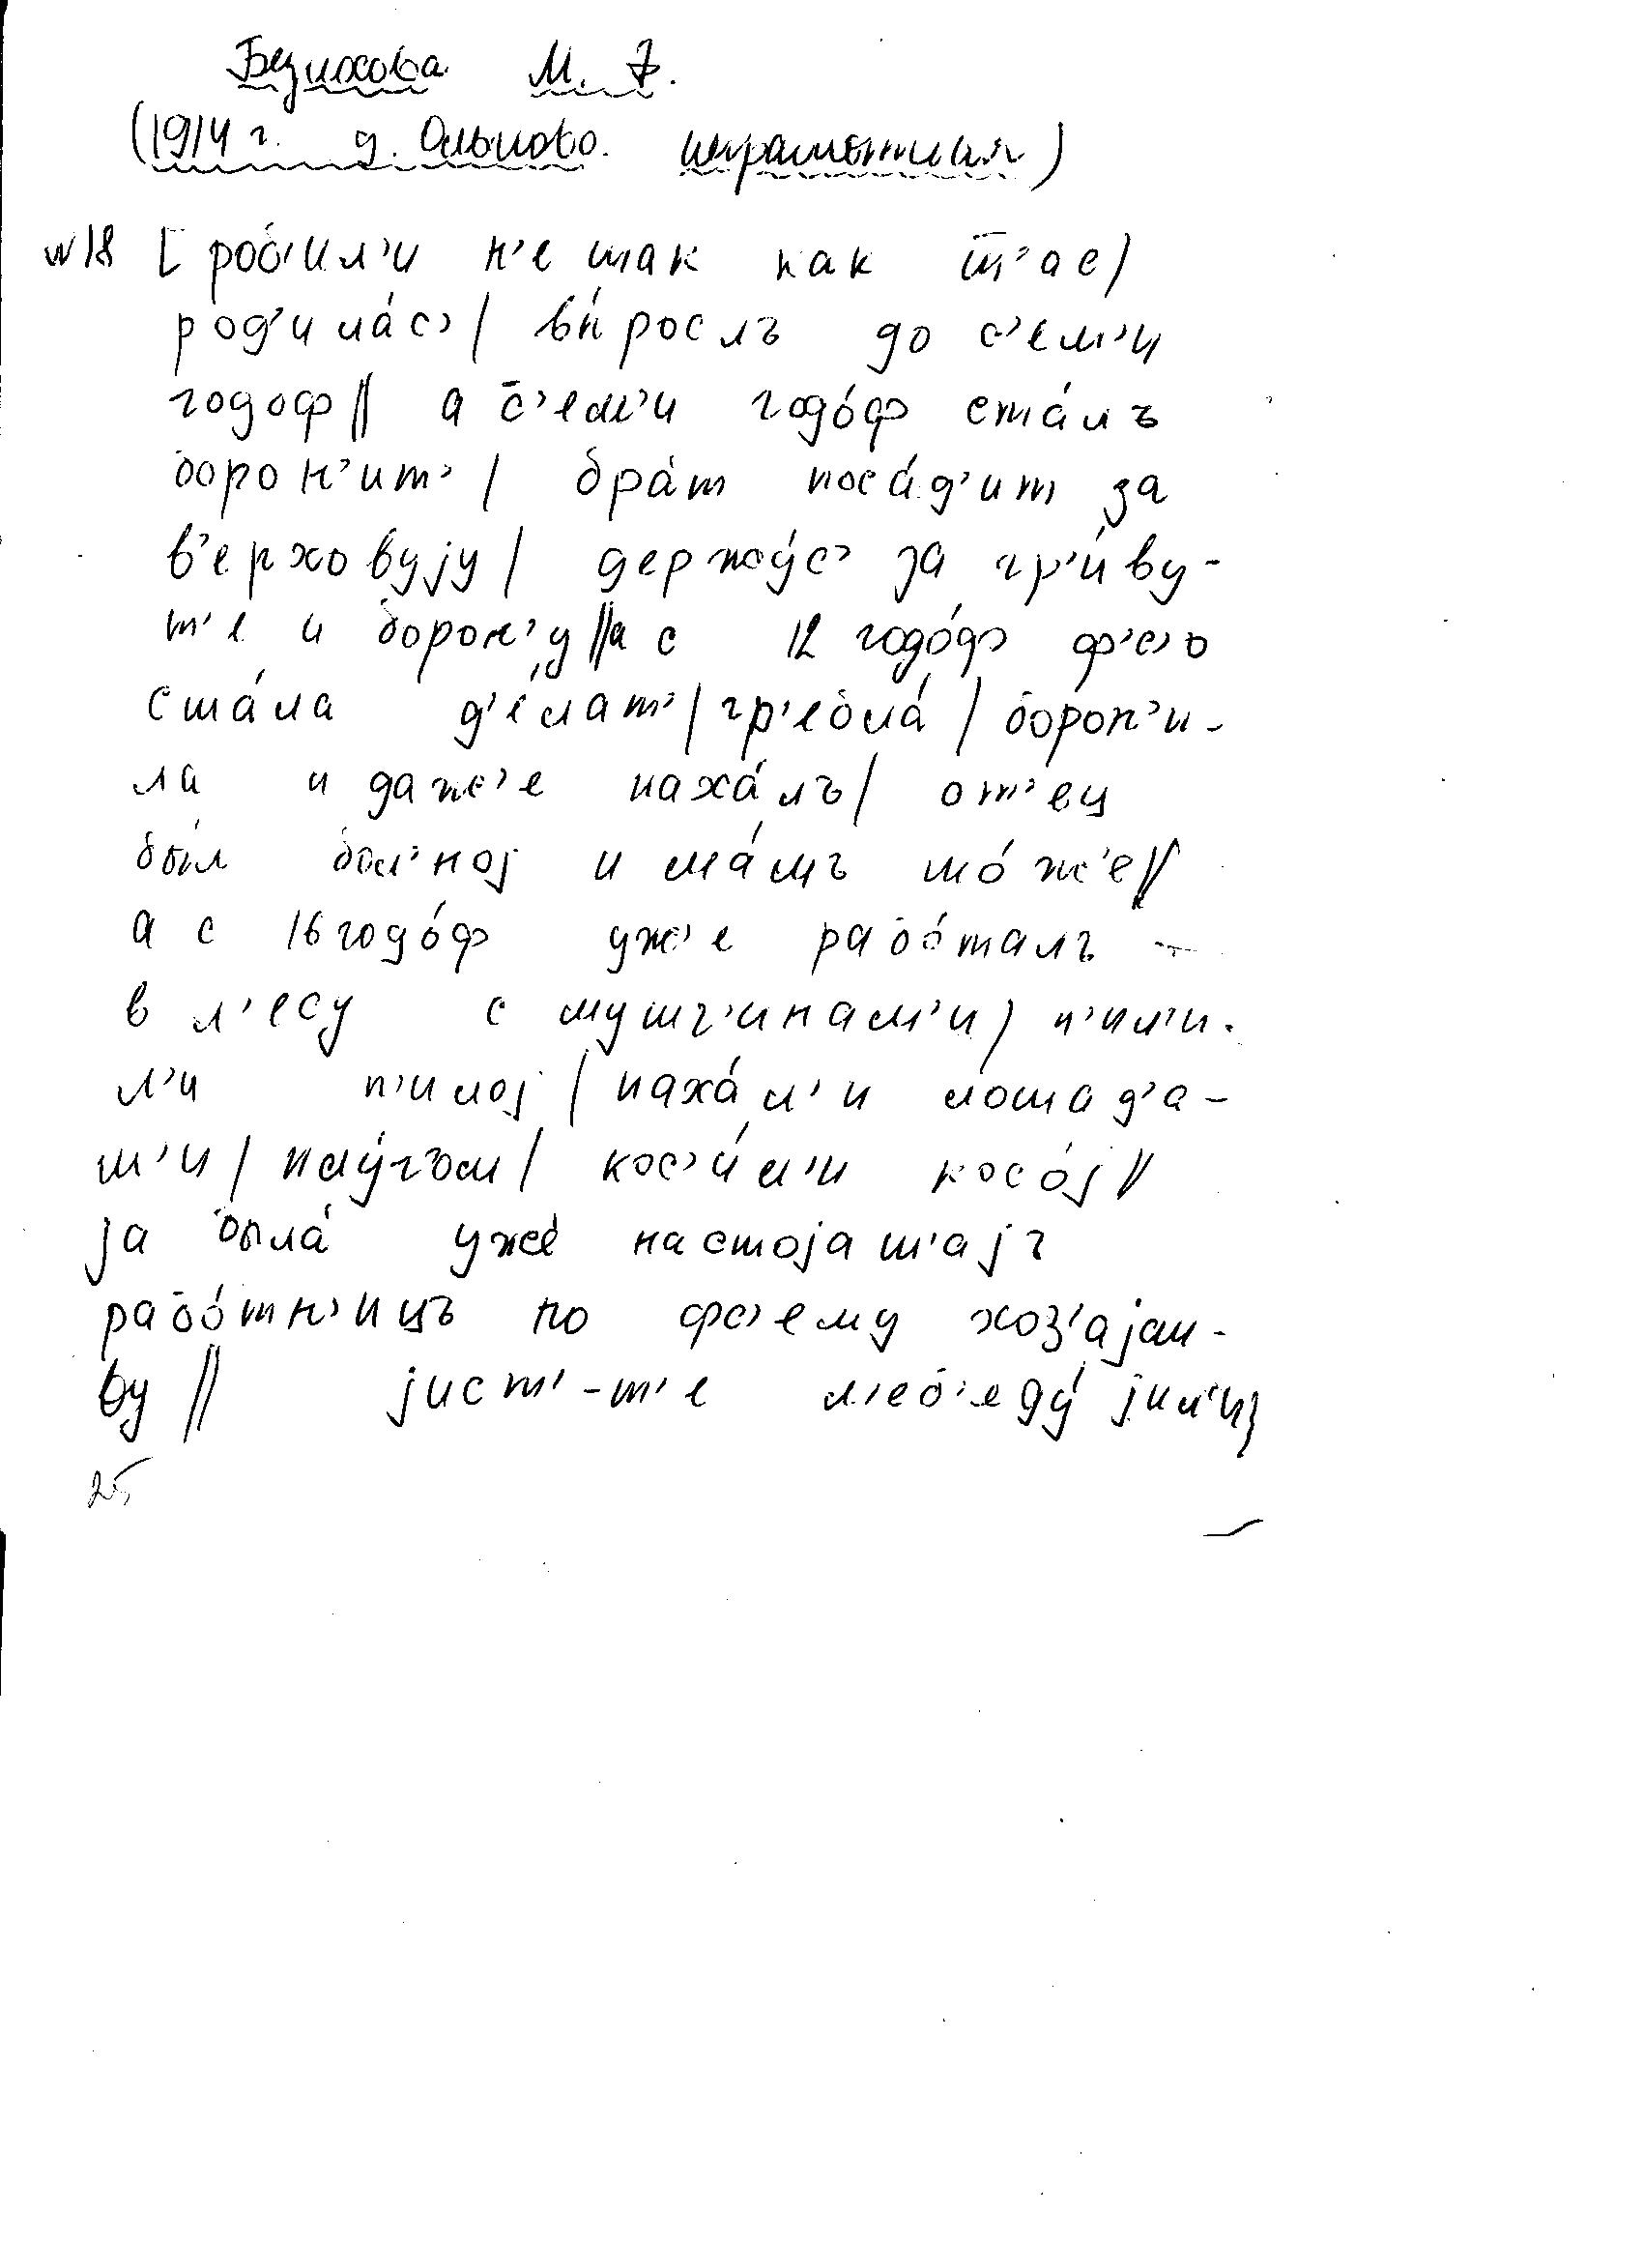 Безихова М. Ф.
(1914 г. д. Ольково. неграмотная)
№18 [ роб'ил'и н'е так как т̄'ас/
род'ила́с'/ вы́росль до с'ем'и
годоф// а с̄'ем'и годо́ф ста́лъ
борон'ит'/ бра́т поса́д'ит за
в'ерховују/ держу́с' за гр'и́ву-
т'е и борон'у́//а с 12 годо́ф ф'с'о
ста́ла д'е́лат'/гр'ебла́/борон'и-
ла и даж'е паха́лъ/ от'ец
бы́л бол'ној и ма́мъ то́ж'е//
а с 16 годо́ф уж'е рабо́талъ
в л'есу с мушч'инам'и/ п'ил'и-
л'и п'илој/паха́л'и лошад'а-
м'и/плу́гъм/ кос'и́л'и косо́ј//
ја была́ уже́ настојаш'ајъ
рабо́тн'ицъ по фс'ему хоз'ајст-
ву// јист'-т'е л'еб'еду́ јил'и]
25